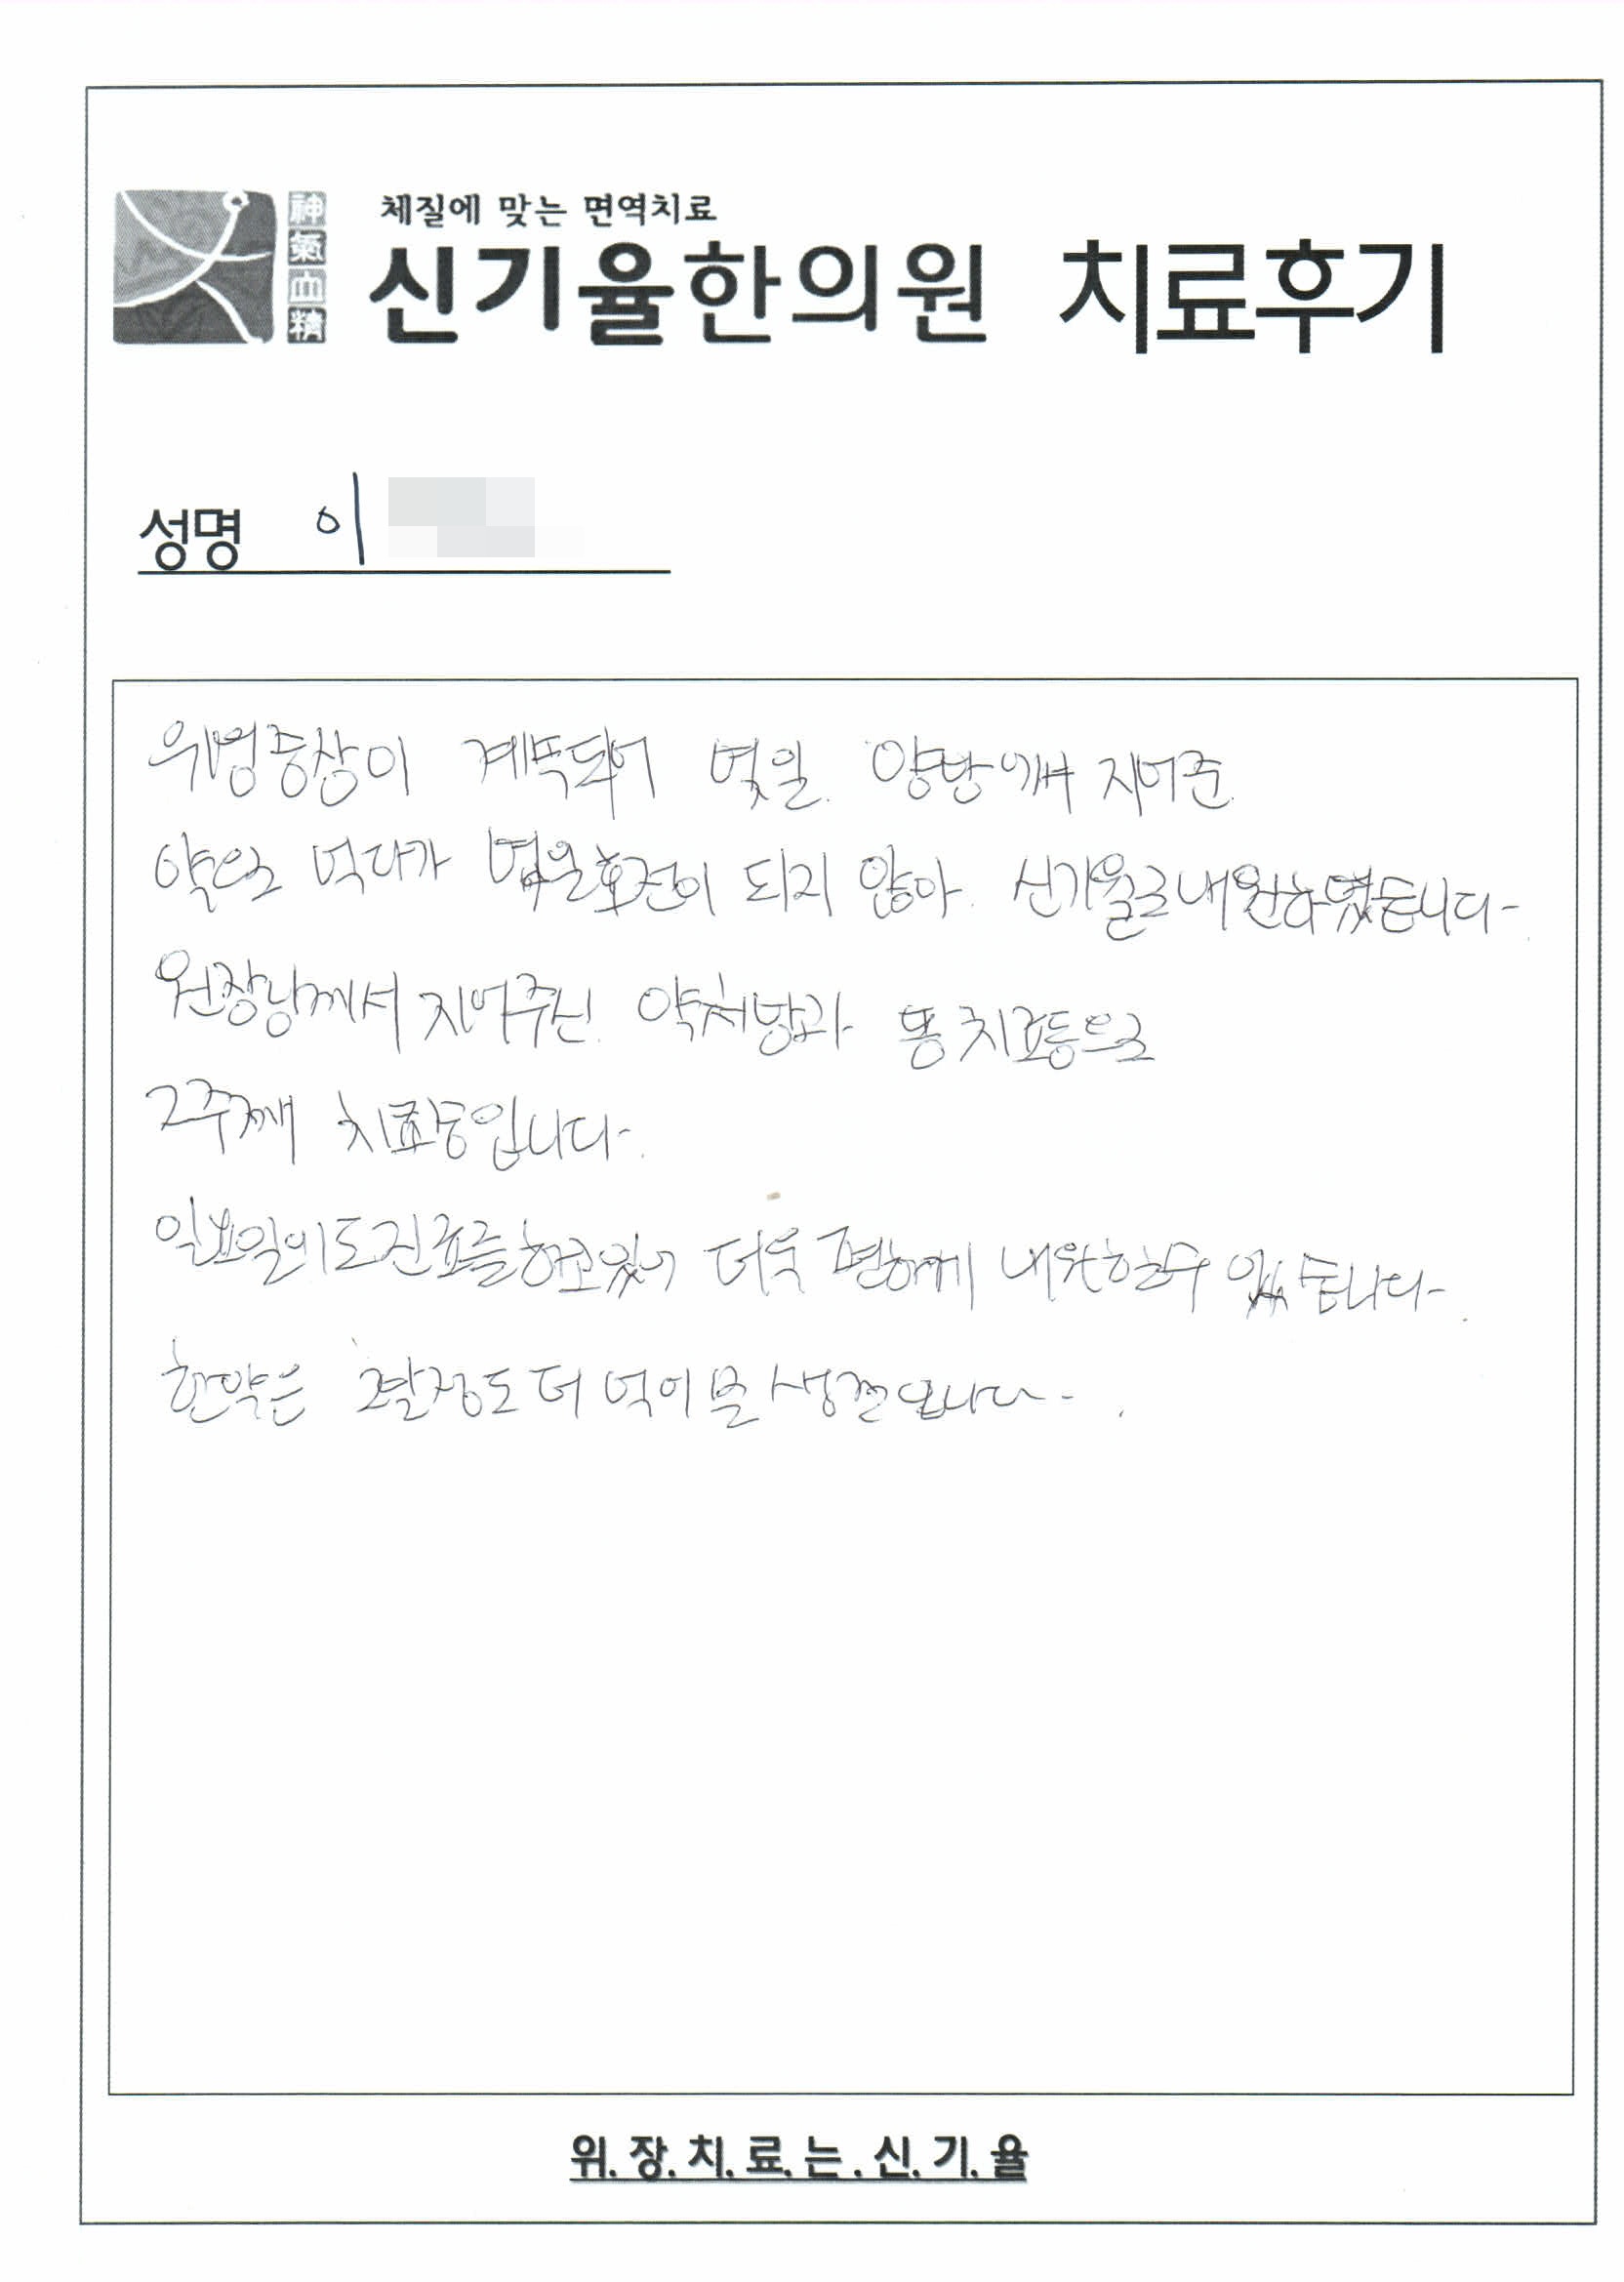 神氣血精
체질에 맞는 면역치료
신기율한의원 치료후기
성명 이
위병증상이 계속되어 몇일 양방에서 지어준
약을 먹다가 호전이 되지 않아 신기율로 내원하였습니다.
원장님께서 지어주신 약처방과 통 치료등으로
2주째 치료중입니다.
일요일에도 진료를 하고 있어 더욱 편하게 내원할수 있습니다.
한약은 2달정도 더 먹어볼 생각입니다.
위.장.치.료.는.신.기.율